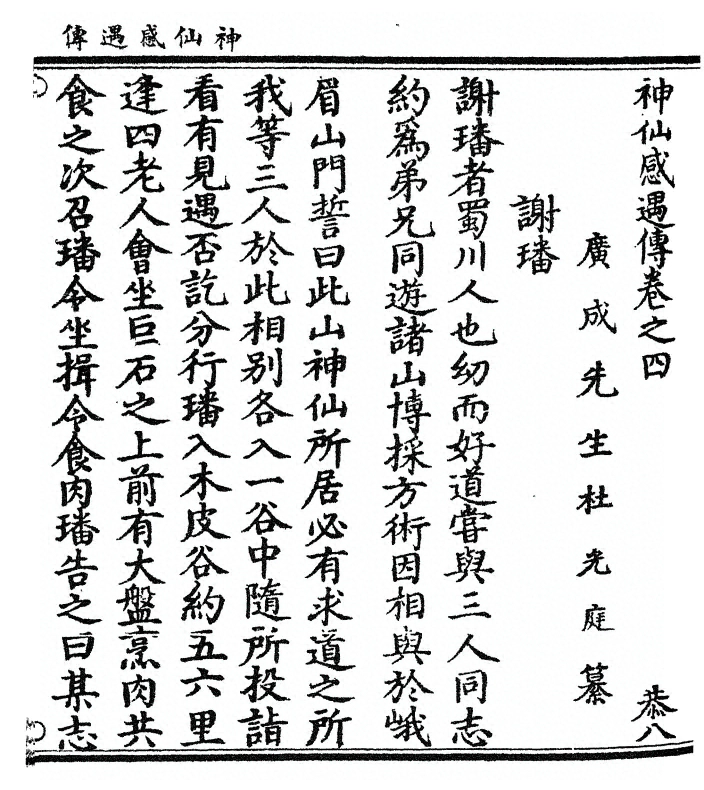 神仙感遇傳
神仙感遇傳卷之四 恭八
廣成先生杜光庭纂
謝璠
謝璠者蜀川人也幼而好道嘗與三人同志
約爲弟兄同遊諸山博採方術因相與於峨
眉山門誓曰此山神仙所居必有求道之所
我等三人於此相別各入一谷中隨所投詣
看有見遇否訖分行璠入木皮谷約五六里
逢四老人會坐巨石之上前有大盤烹肉共
食之次召璠令坐揖令食肉璠告之曰某志